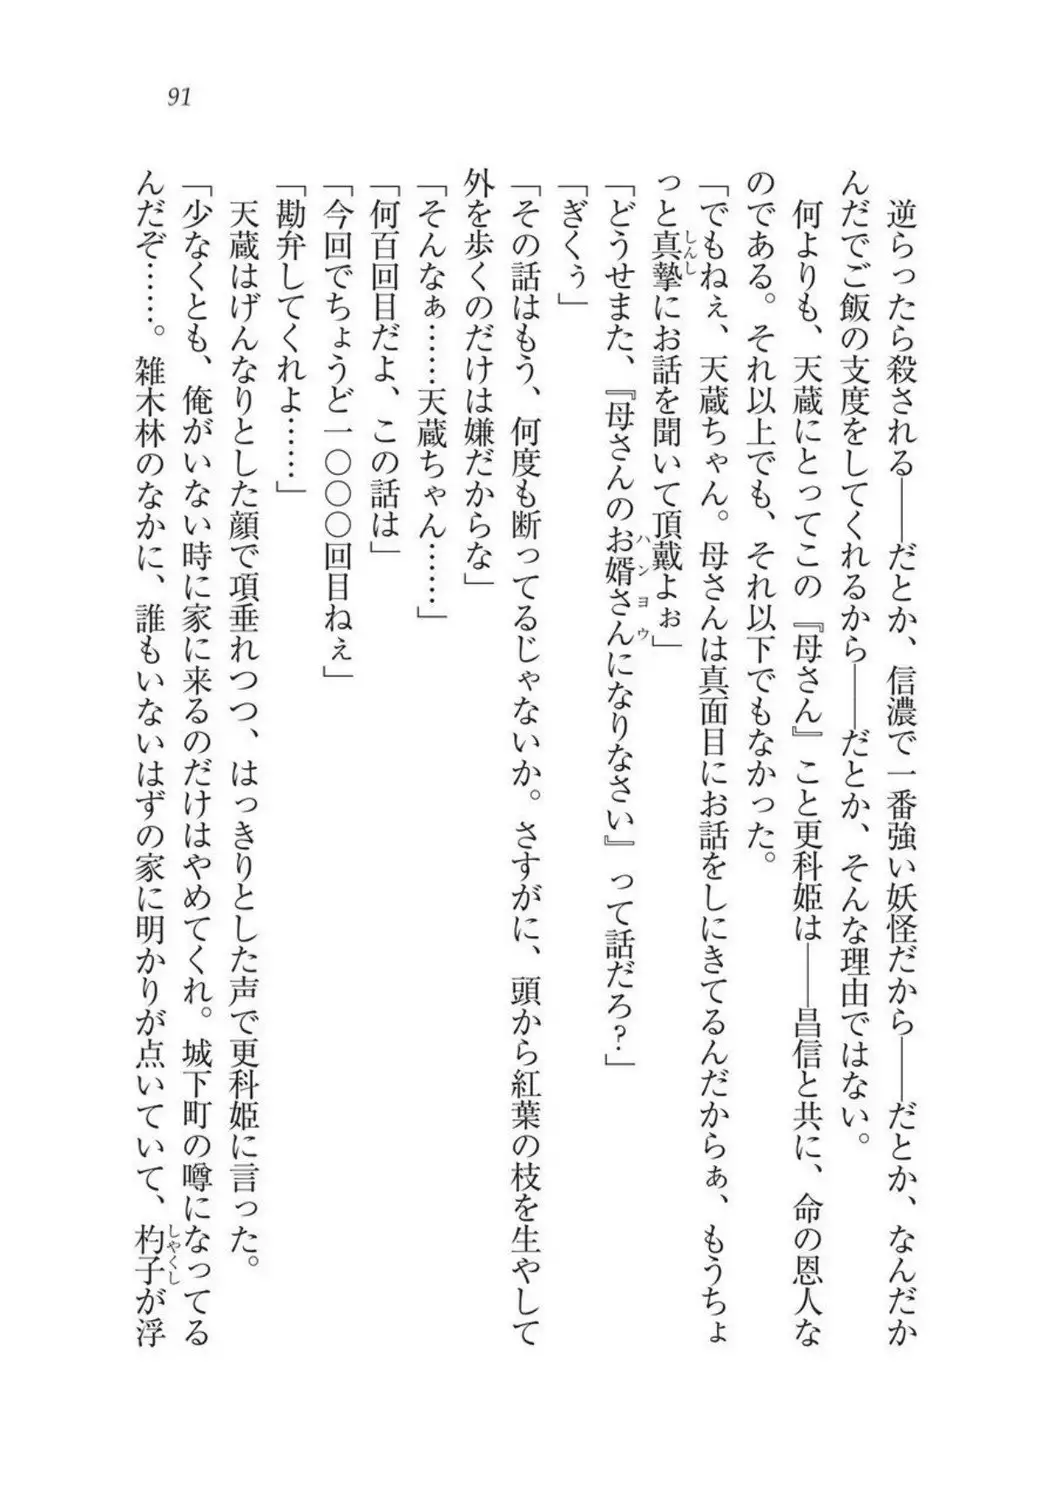 91
逆らったら殺される――だとか、信濃で一番強い妖怪だから――だとか、なんだか
んだでご飯の支度をしてくれるから――だとか、そんな理由ではない。
何よりも、天蔵にとってこの『母さん』こと更科姫は――昌信と共に、命の恩人な
のである。それ以上でも、それ以下でもなかった。
「でもねぇ、天蔵ちゃん。母さんは真面目にお話をしにきてるんだからぁ、もうちょ
っと真摯にお話を聞いて頂戴よぉ」
しんし
「どうせまた、『母さんのお婿さんになりなさい』って話だろ?」
ハンヨウ
「ぎくぅ」
「その話はもう、何度も断ってるじゃないか。さすがに、頭から紅葉の枝を生やして
外を歩くのだけは嫌だからな」
「そんなぁ……天蔵ちゃん……」
「何百回目だよ、この話は」
「今回でちょうど一〇〇〇回目ねぇ」
「勘弁してくれよ……」
天蔵はげんなりとした顔で項垂れつつ、はっきりとした声で更科姫に言った。
「少なくとも、俺がいない時に家に来るのだけはやめてくれ。城下町の噂になってる
んだぞ……。雑木林のなかに、誰もいないはずの家に明かりが点いていて、杓子が浮
しゃくし